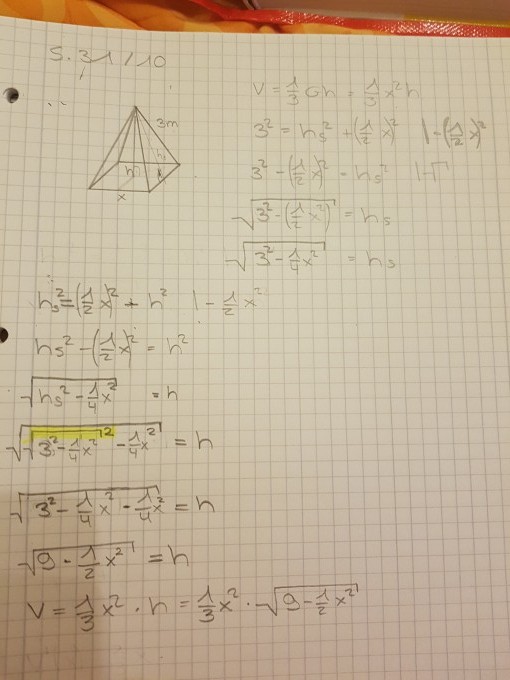 S. 31/10
3m
hs
h
x
x
V = 1/3 Gh = 1/3 x² h
3² = hs² + (1/2 x)² | - (1/2 x)²
3² - (1/2 x)² = hs² | √
√(3² - (1/2 x)²) = hs
√(3² - 1/4 x²) = hs
hs² = (1/2 x)² + h² | - 1/2 x²
hs² - (1/2 x)² = h²
√(hs² - 1/4 x²) = h
√(√(3² - 1/4 x²)² - 1/4 x²) = h
√(3² - 1/4 x² - 1/4 x²) = h
√(9 - 1/2 x²) = h
V = 1/3 x² · h = 1/3 x² · √(9 - 1/2 x²)